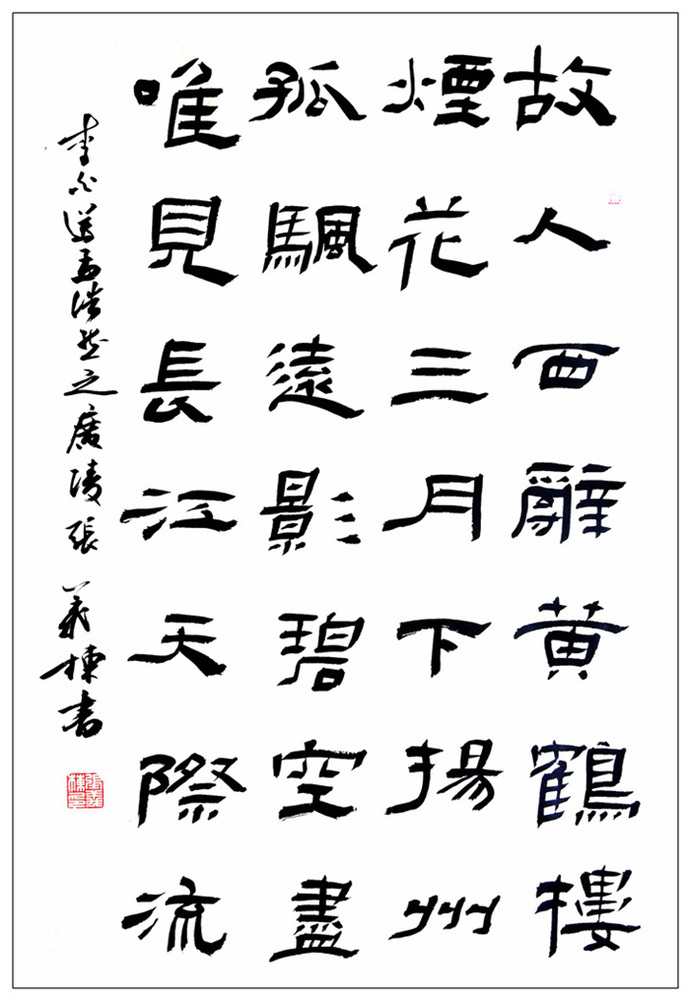 故人西辭黃鶴樓
煙花三月下揚州
孤颿遠影碧空盡
唯見長江天際流
李白送孟浩然之廣陵張義棟書